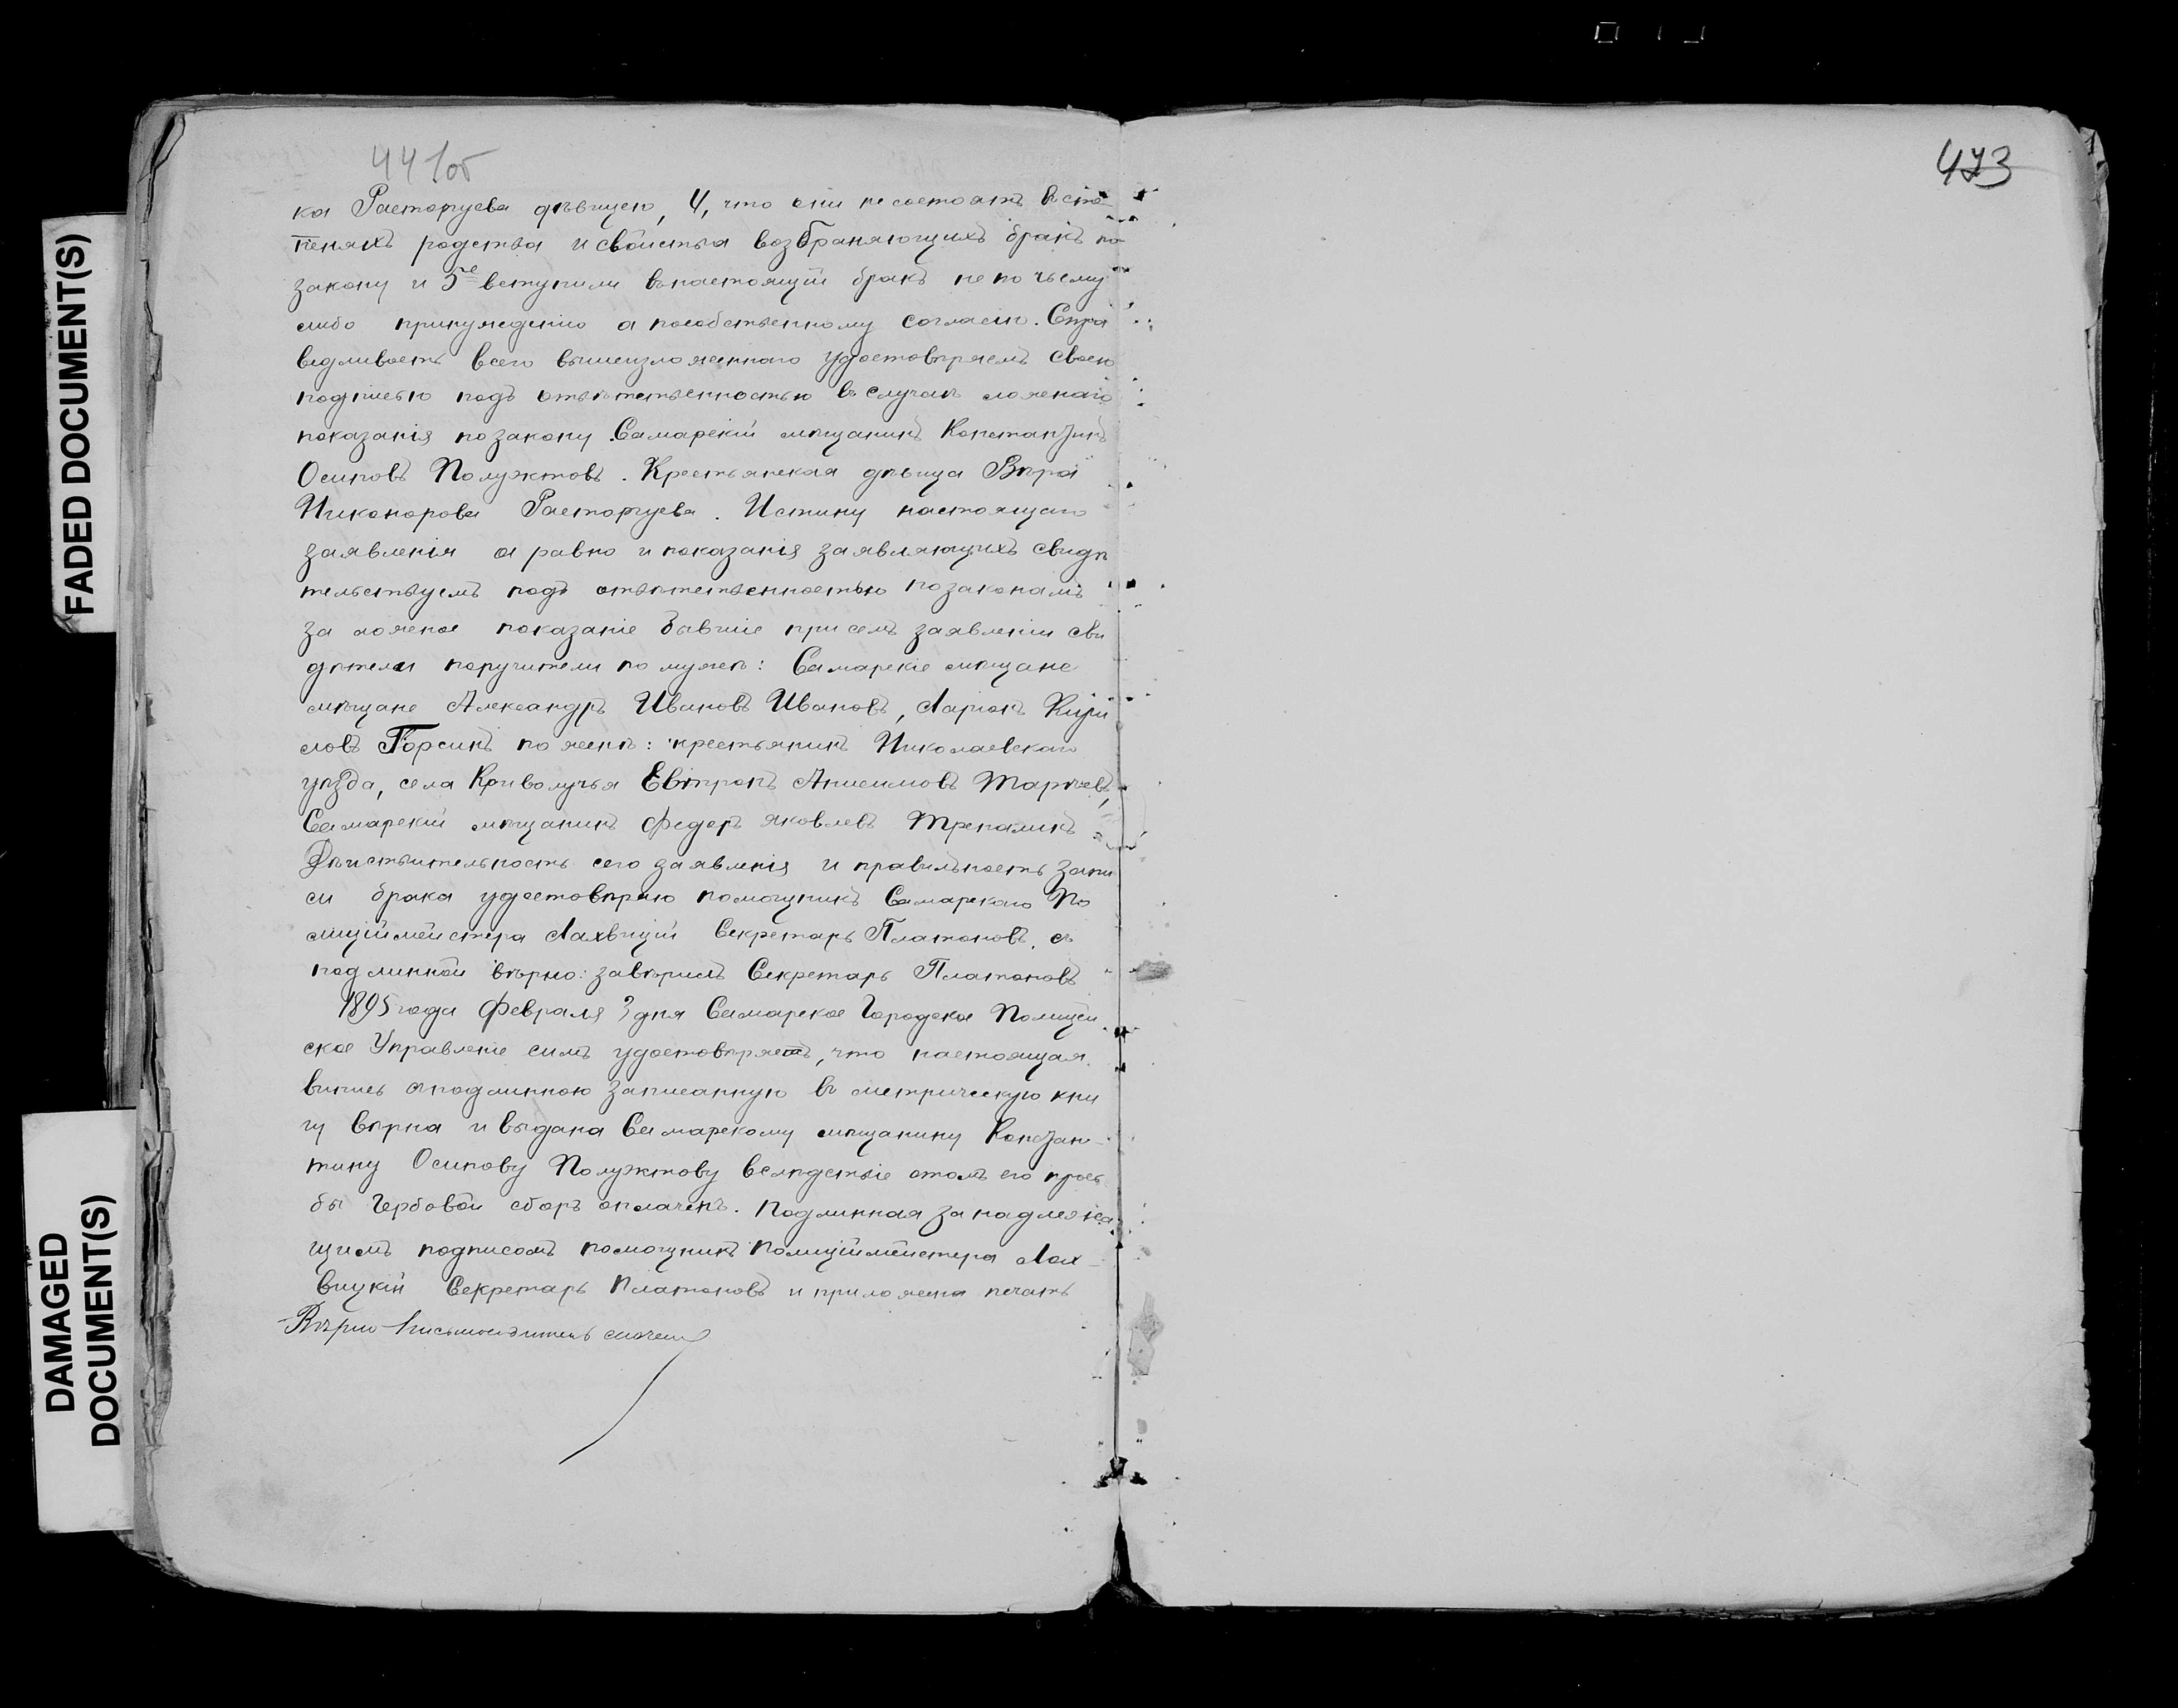 441об
473
ка Расторгуева дѣвицею, 4, что они не состоятъ въ сте-
пеняхъ родства и свойства возбраняющихъ бракъ по
закону и 5е вступили в настоящій бракъ не по чьему
либо принуждению а пособственному согласію. Спра
ведливость всего вышеизложеннаго удостовѣряемъ своею
подписью подъ отвѣтственностью въ случаѣ ложнаго
показанія по закону. Самарскій мѣщанинъ Константинъ
Осиповъ Полуэктовъ. Крестьянская дѣвица Вѣра
Никонорова Расторгуева. Истину настоящаго
заявленія а равно и показанія заявляющихъ свидѣ
тельствуемъ подъ отвѣтственностью по законамъ
за ложное показаніе бывшіе при семъ заявленіи сви
дѣтели поручители по мужѣ: Самарскіе мѣщане
мѣщане Александръ Ивановъ Ивановъ, Ларіонъ Кири
ловъ Горсинъ по женѣ: крестьянинъ Николаевскаго
уѣзда, села Криволучья Анисимовъ
Самарскій мѣщанинъ Федоръ Яковлевъ Трепалинъ
Дѣйствительность сего заявленія и правильность запи
си брака удостовѣряю помощникъ Самарскаго По
лиціймейстера Лахвицій Секретарь Платоновъ. съ
подлинной вѣрно: завѣрилъ Секретарь Платоновъ
1895 года Февраля 3 дня Самарское Городское Полицей
ское Управленіе симъ удостовѣряетъ, что настоящая
випись с подлинною записанную въ метрическую кни
гу вѣрна и выдана Самарскому мѣщанину Констан-
тину Осипову Полуэктову вслѣдствіе отомъ его прось
бы Гербовой сборъ оплаченъ. Подлинная за надлежа
щимъ подписомъ помощникъ Полиціймейстера Лах-
вицкій Секретарь Платоновъ и приложена печать
Вѣрно Письмоводитель
FADED DOCUMENT(S)
DAMAGED
DOCUMENT(S)